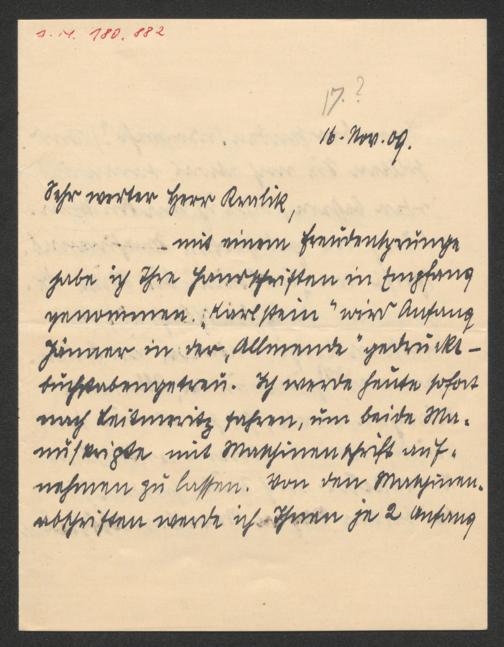 J.N. 180.882
17.?
16. Nov. 09.
Sehr werter Herr Kralik,
– mit einem Freudensprunge
habe ich Ihre Handschriften in Empfang
genommen. „Karlstein" wird Anfang
Jänner in der „Allmende" gedruckt –
buchstabengetreu. Ich werde heute sofort
nach Leitmeritz fahren, um beide Ma-
nuskripte mit Maschinenschrift auf-
nehmen zu lassen. Von den Maschinen-
abschriften werde ich Ihnen je 2 Anfang